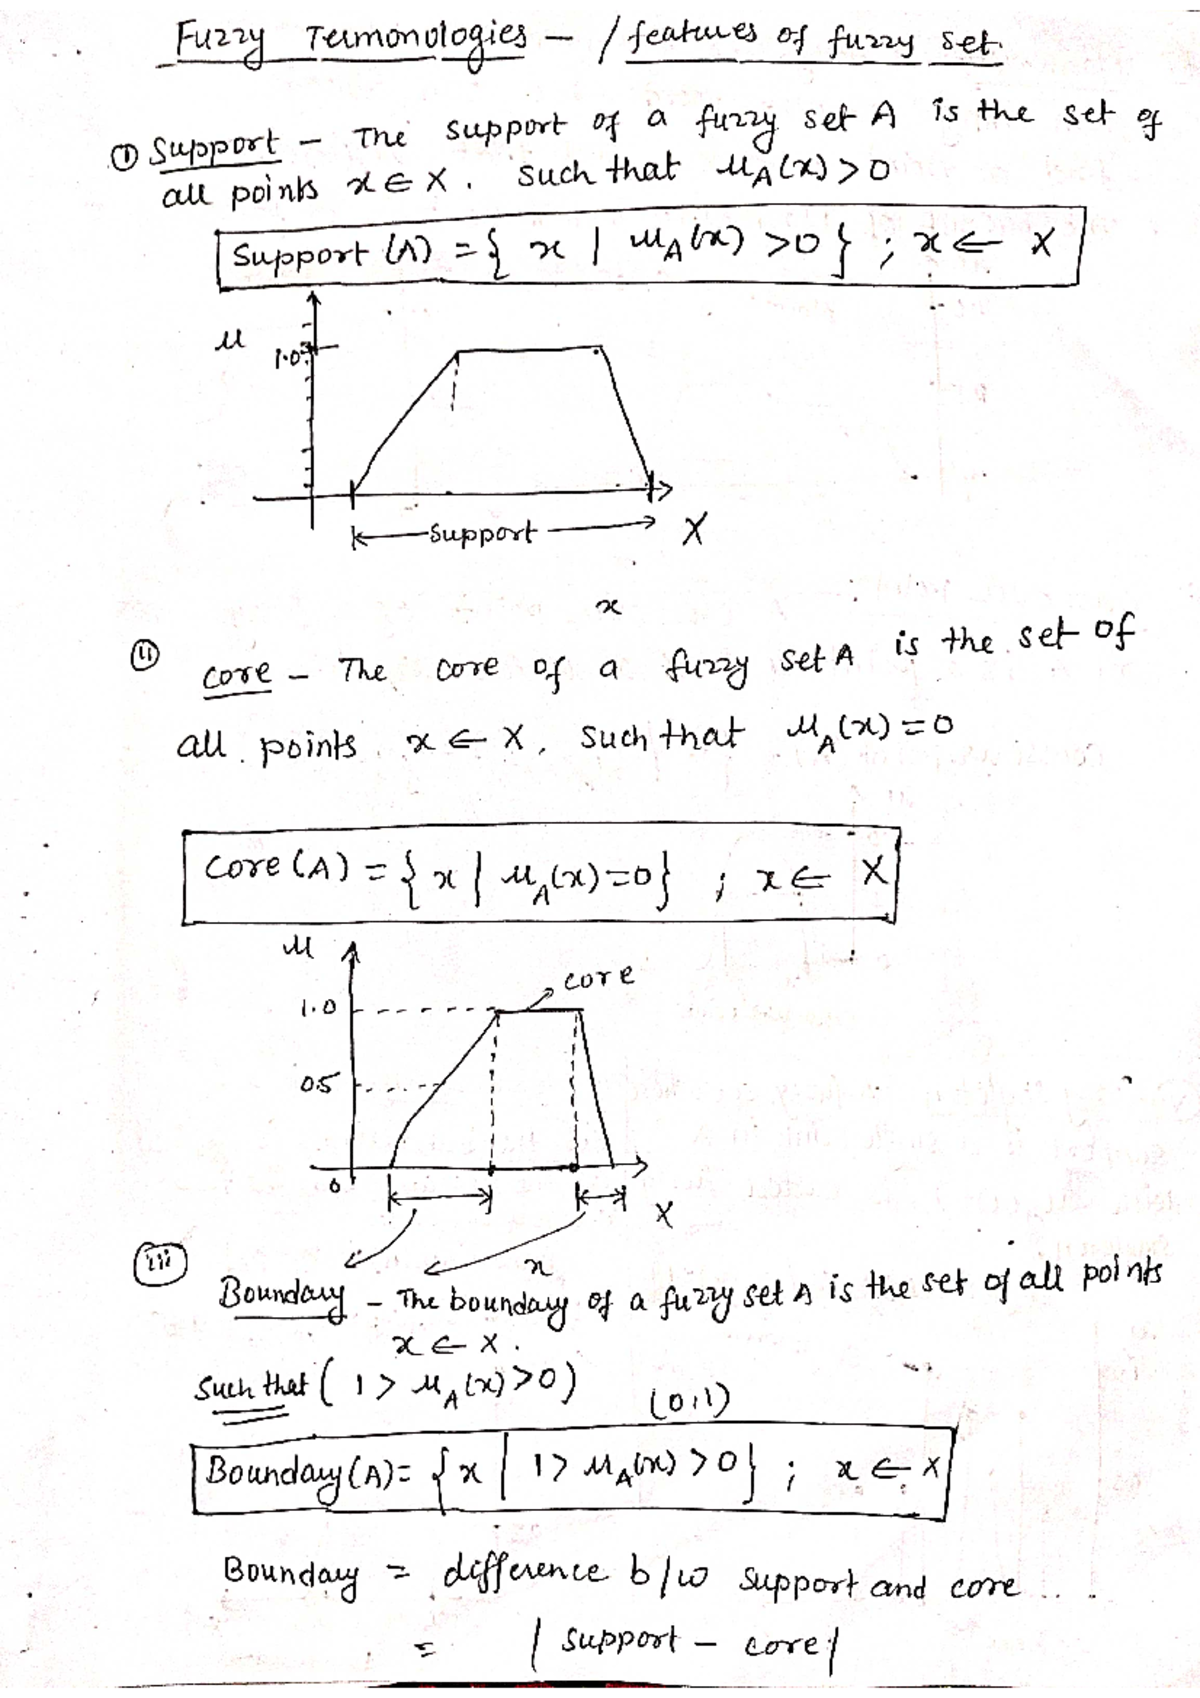 Fuzzy Termonologies – / features of fuzzy set.
① Support – The support of a fuzzy set A is the set of
all points x ∈ X. such that μA(x) > 0
Support (A) = { x | μA(x) > 0 } ; x ∈ X
μ
1.0
Support
X
x
(ii)
core – The core of a fuzzy set A is the set of
all points x ∈ X, such that μA(x) = 0
Core (A) = { x | μA(x) = 0 } ; x ∈ X
μ
core
1.0
0.5
0
X
x
(iii)
Boundary – The boundary of a fuzzy set A is the set of all points
x ∈ X.
Such that ( 1 > μA(x) > 0 )
(0,1)
Boundary (A) = { x | 1 > μA(x) > 0 } ; x ∈ X
Boundary = difference b/w support and core ...
= | support – core |